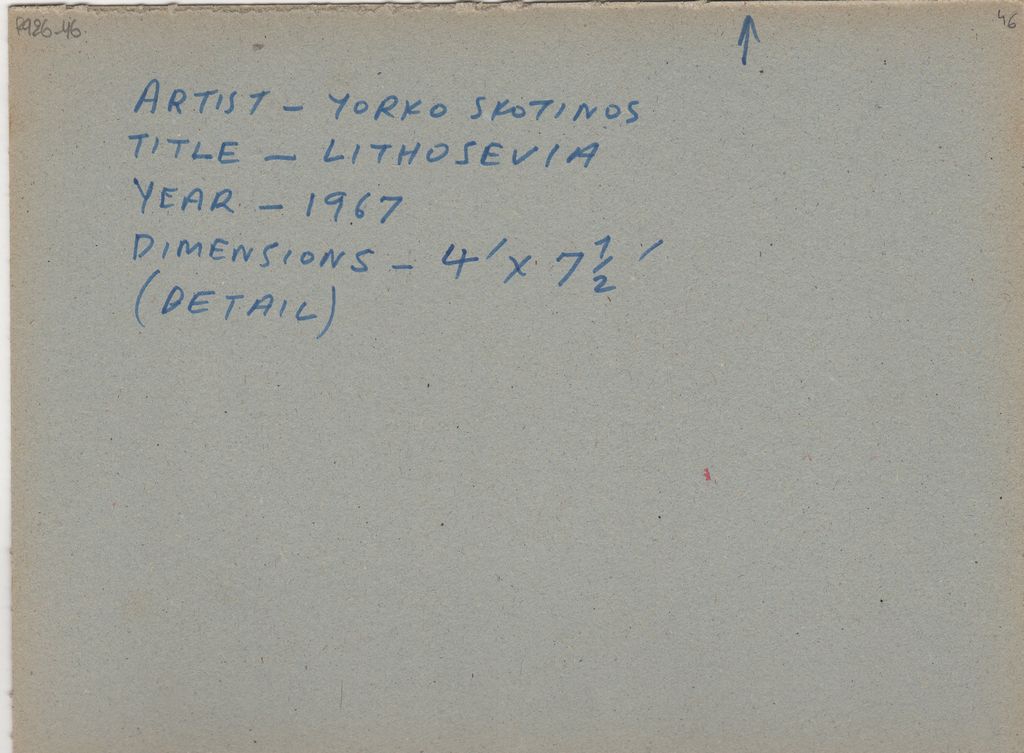 P926-46
46
ARTIST - YORKO SKOTINOS
TITLE - LITHOSEVIA
YEAR - 1967
DIMENSIONS - 4' x 7 1/2 '
(DETAIL)